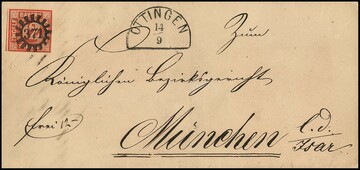 371
OTTINGEN
14
9
Zum
Königlichen Bezirksgericht
frei
München a. d.
Isar